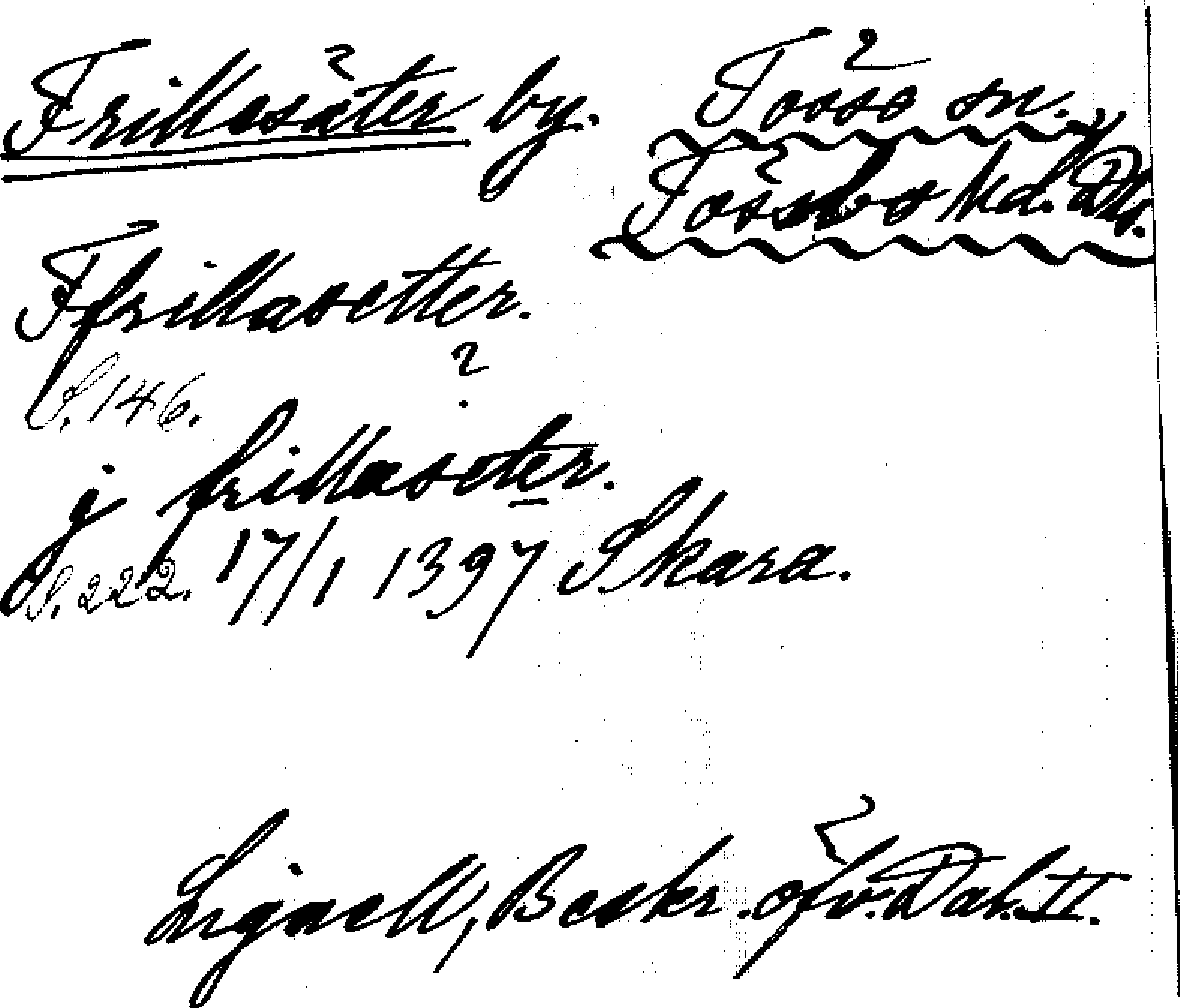 Frillesäter by. Tösso sn.
Tössbo hd. Dls.
Ffrillasetter.
S. 146. ?
j frillaseter.
S. 222. 17/1 1397 Skara.
Lignell, Beskr. öfv. Dal. II.